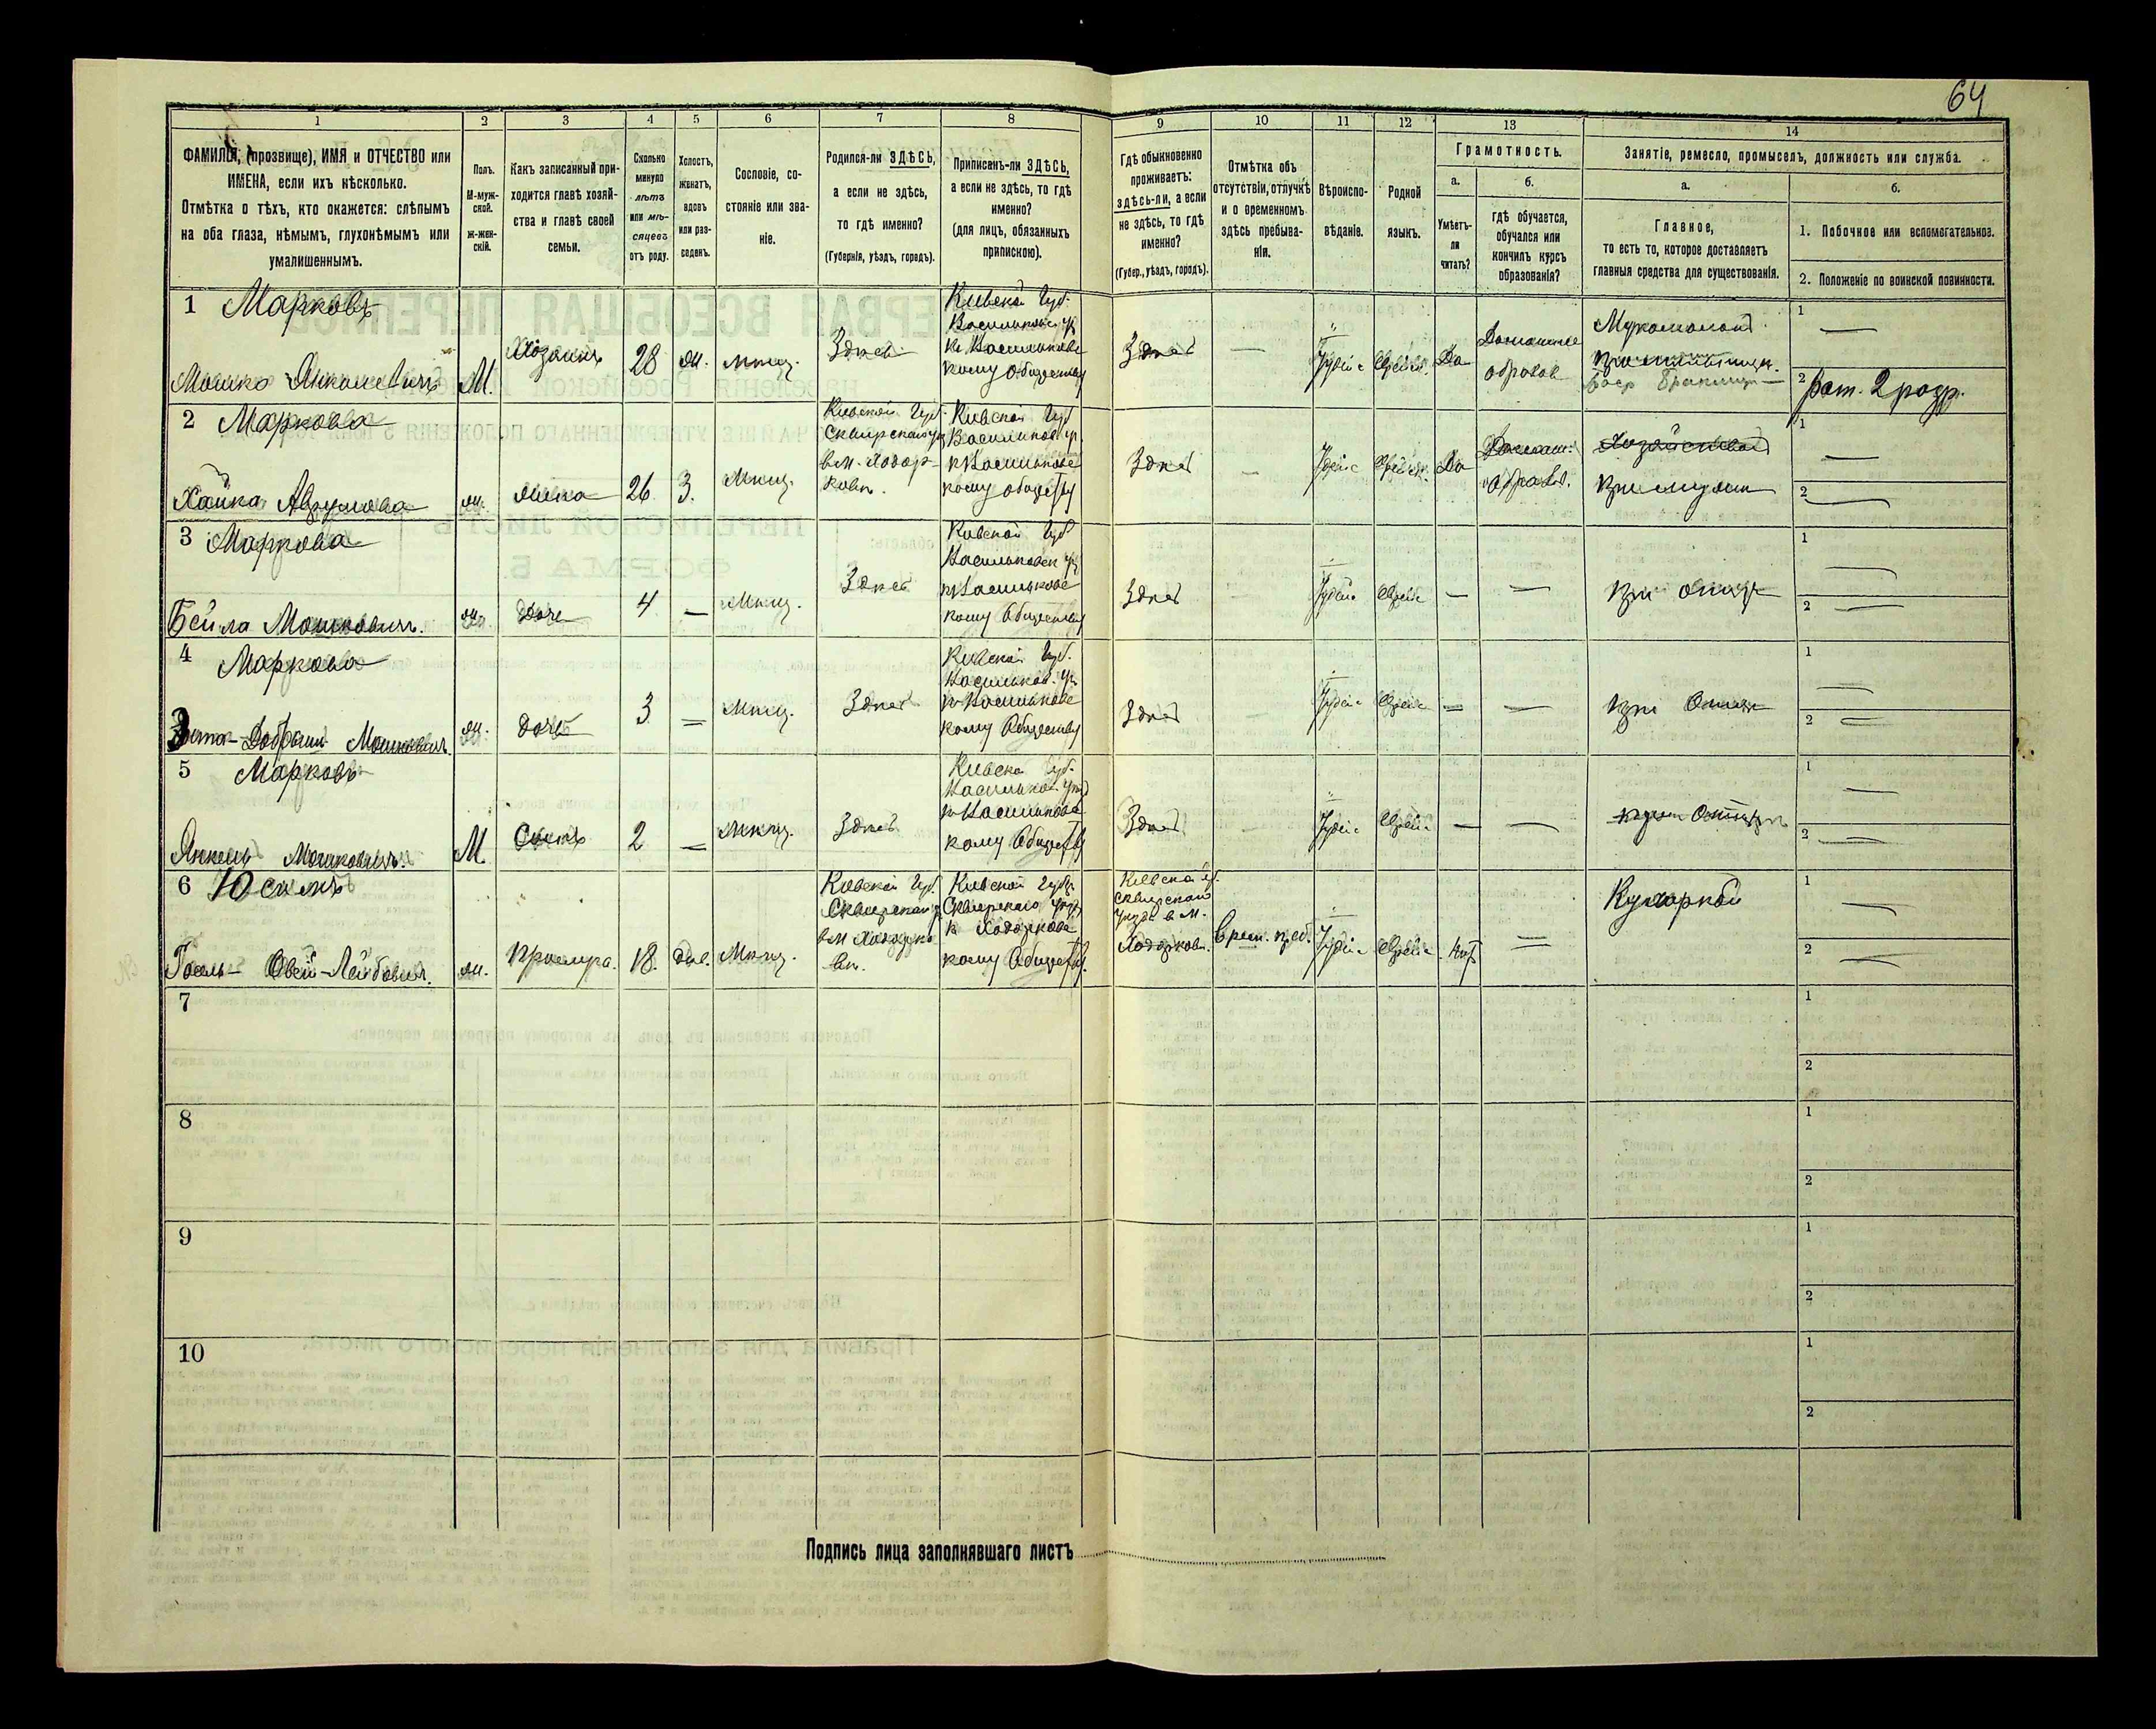 64
1 2 3 4 5 6 7 8 9 10 11 12 13 14
ФАМИЛІЯ, (прозвище), ИМЯ и ОТЧЕСТВО или
ИМЕНА, если ихъ нѣсколько.
Отмѣтка о тѣхъ, кто окажется: слѣпымъ
на оба глаза, нѣмымъ, глухонѣмымъ или
умалишеннымъ.
Полъ.
М-муж-
ской.
ж-жен-
скій.
Какъ записанный при-
ходится главѣ хозяй-
ства и главѣ своей
семьи.
Сколько
минуло
лѣтъ
или мѣ-
сяцевъ
отъ роду.
Холостъ,
женатъ,
вдовъ
или раз-
веденъ.
Сословіе, со-
стояніе или зва-
ніе.
Родился-ли ЗДѢСЬ,
а если не здѣсь,
то гдѣ именно?
(Губернія, уѣздъ, городъ).
Приписанъ-ли ЗДѢСЬ,
а если не здѣсь, то гдѣ
именно?
(для лицъ, обязанныхъ
припискою).
Гдѣ обыкновенно
проживаетъ:
здѣсь-ли, а если
не здѣсь, то гдѣ
именно?
(Губер., уѣздъ, городъ).
Отмѣтка объ
отсутствіи, отлучкѣ
и о временномъ
здѣсь пребыва-
ніи.
Вѣроиспо-
вѣданіе.
Родной
языкъ.
Грамотность.
а.
Умѣетъ-
ли
читать?
б.
гдѣ обучается,
обучался или
кончилъ курсъ
образованія?
Занятіе, ремесло, промыселъ, должность или служба.
а.
Главное,
то есть то, которое доставляетъ
главныя средства для существованія.
б.
1. Побочное или вспомогательное.
2. Положеніе по воинской повинности.
1 Марковъ
Мошко Янкелевичъ
М.
Хозяинъ
28
ж.
мѣщ.
Здѣсь
Кіевской Губ.
кому обществу
Здѣсь
—
Іудейс
Еврейск.
Да
Домашнее
образов
1 —
2 Рат. 2 разр.
2 Маркова
Хайка Аврумова
ж.
жена
26
З.
Мѣщ.
Кіевской Губ.
Сквирскаго у
в м. Ходор-
ковѣ.
Кіевской Губ
кому общству
Здѣсь
—
Іудейс
Еврейск.
Да
Домаш.
образов.
при мужѣ
1 —
2 —
3 Маркова
Бейла Мошковичъ.
ж.
дочь
4
—
Мѣщ.
Здѣсь
Кіевской Губ
кому Обществу
Здѣсь
Іудейс
Еврейс
—
—
при отцѣ
1 —
2 —
4 Маркова
Мошковичъ.
ж.
дочь
3
—
Мѣщ.
Здѣсь
Кіевской Губ.
кому Обществу
Здѣсь
Іудейс
Еврейс
—
—
при Отцѣ
1 —
2 —
5 Марковъ
Янкель Мошковичъ.
М
Сынъ
2
—
Мѣщ.
Здѣсь
Кіевской Губ.
кому Общству
Здѣсь
Іудейс
Еврейс
—
—
при Отцѣ
1 —
2 —
6
Овсей-Лейбовичъ.
ж.
18.
дѣв.
Мѣщ.
Кіевской Губ.
Сквирскаго у
в м Ходорко
вѣ.
Кіевской Губер.
Сквирскаго уѣзда
к Ходоркове
кому Общству.
Кіевской губ.
Сквирскаго
уѣзда в м.
Ходорковѣ.
врем. преб.
Іудейс
Еврейс
нѣт
—
Кухаркой
1 —
2 —
7 1
2
8 1
2
9 1
2
10 1
2
Подпись лица заполнявшаго листъ